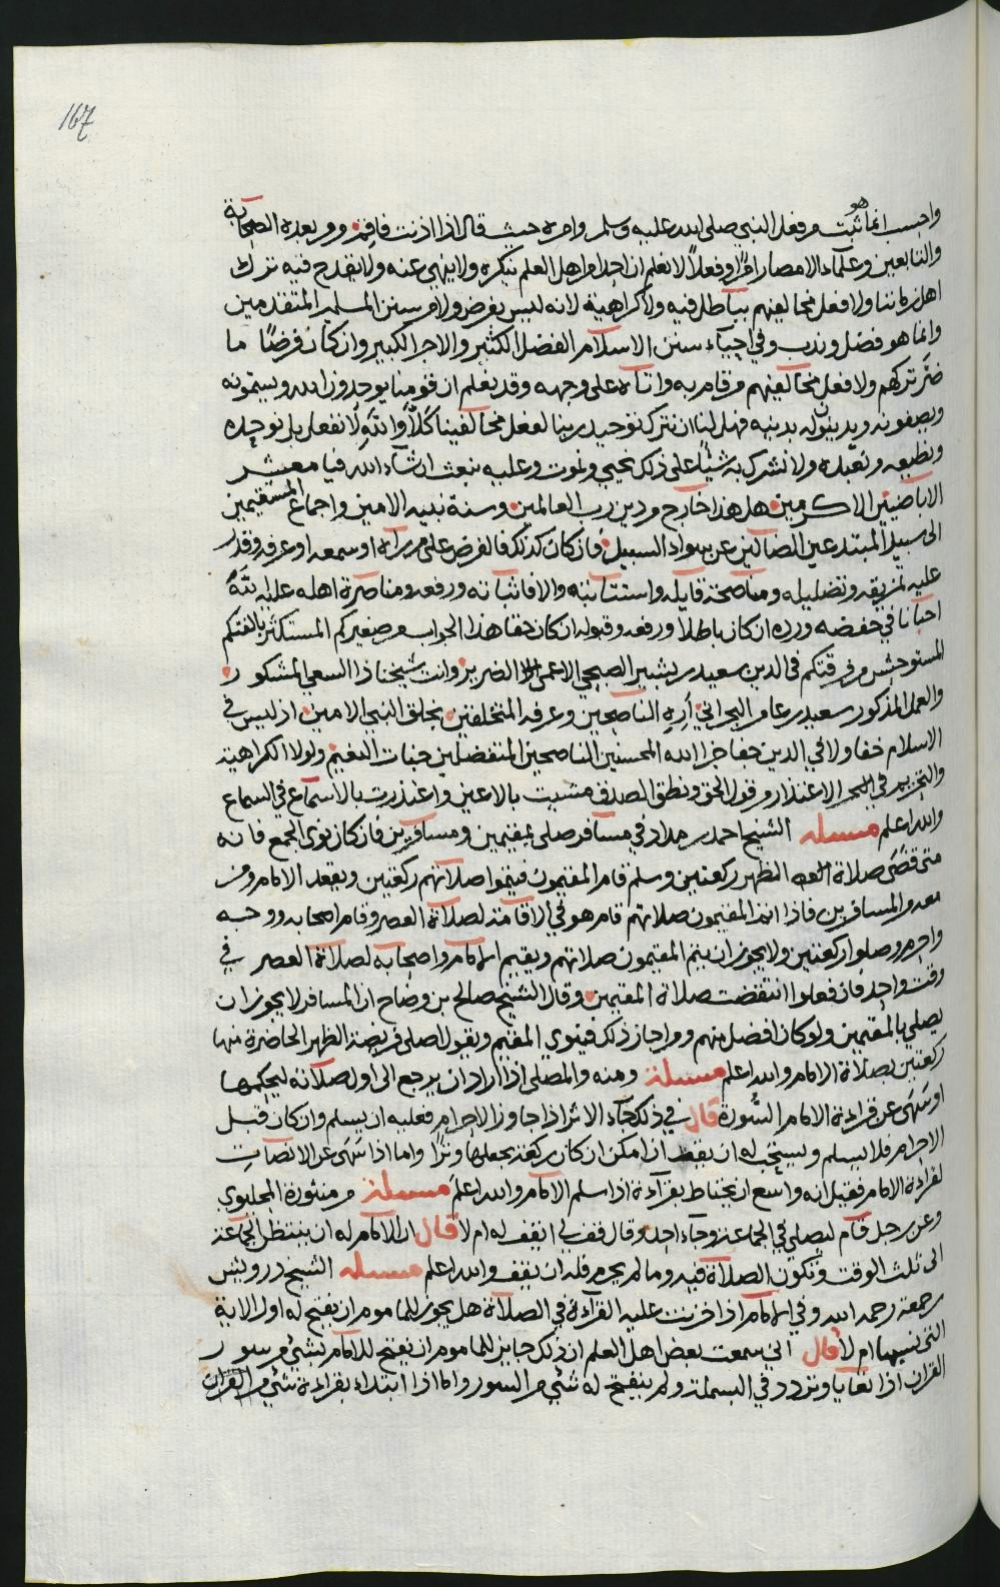 167
واحسب انما هو ثبت من فعل النبي صلى الله عليه وسلم وامره حيث قال اذا اذنت فاقم ومن بعده الصحابة
والتابعين وعلماء الامصار امرًا وفعلاً لا نعلم ان احدا من اهل العلم ينكره ولا ينهى عنه ولا يقدح فيه ترك
اهل زماننا ولا فعل مخالفيهم بباطل فيه ولا كراهية لانه ليس بفرض ولا من سنن المسلمين المتقدمين
وانما هو فضل وندب وفي احياء سنن الاسلام الفضل الكثير والاجر الكبير وان كان فرضًا ما
ضر تركهم ولا فعل مخالفيهم من قام به واتاه على وجهه وقد نعلم ان قومنا يوحدون الله ويسمونه
ويصفونه ويدينون له بدينه فهل لنا ان نترك توحيد ربنا لفعل مخالفينا كلاً والله لا نفعل بل نوحده
ونطيعه ونعبده ولا نشرك به شيئًا على ذلك نحيى ونموت وعليه نبعث ان شاء الله فيا معشر
الاباضيين الاكرمين هل هذا خارج من دين رب العالمين وسنة نبيه الامين واجماع المستقيمين
الى سبيل المبتدعين الضالين عن سواء السبيل فان كان كذلك فالفرض على من راه او سمعه او عرفه وقدر
عليه تمزيقه وتضليله ومناصحة قايله واستتابته والا فاثباته ورفعه ومناصرة اهله عليه لله
احبانا في خفضه ورده ان كان باطلا ورفعه وقبوله ان كان حقا هذا الجواب من صغيركم المستكثر بالفتكم
المستوحش من فرقتكم في الدين سعيد بن بشير الصبحي الاعمى الضرير وانت شيخنا ذا السعي المشكور
والعمل المذكور سعيد بن عامر البحراني اره الناصحين وعرفه المتخلقين بخلق النبي الامين اذ ليس في
الاسلام خفا ولا في الدين جفا جزا الله المحسنين الناصحين المتفضلين جنات النعيم ولولا الكراهية
والتحريم في الاعتذار من قول الحق ونطق الصدق مشيت بالاعين واعتذرت بالاسماع في السماع
والله اعلم مسئله الشيخ احمد بن مداد في مسافر صلى بمقيمين ومسافرين فان كان نوى الجمع فانه
متى قضى صلاة الظهر ركعتين وسلم قام المقيمون فيتموا صلاتهم ركعتين ويقعد الامام ومن
معه من المسافرين فاذا اتم المقيمون صلاتهم قام هو في الاقامة لصلاة العصر وقام اصحابه ووجه
واحرم وصلوا ركعتين ولا يجوز ان يتم المقيمون صلاتهم ويقيم الامام واصحابه لصلاة العصر في
وقت واحد فان فعلوا انتقضت صلاة المقيمين وقال الشيخ صالح بن وضاح ان المسافر لا يجوز ان
يصلي بالمقيمين ولو كان افضل منهم ومن اجاز ذلك فينوي المقيم ويقول اصلى فريضة الظهر الحاضرة منها
ركعتين بصلاة الامام والله اعلم مسئلة ومنه والمصلى اذا اراد ان يرجع الى اول صلاته ليحكمها
او سهى عن قراءة الامام السورة قال في ذلك جاء الاثر اذا جاوز الاحرام فعليه ان يسلم وان كان قبل
الاحرام فلا يسلم ويستحب له ان يقف ان امكن ان كان ركعة يجعلها وترًا واما اذا سهى عن الانصات
لقراءة الامام فقيل انه واسع ان يحتاط بقراءة اذا سلم الامام والله اعلم مسئلة من منثورة المحليوي
وعن رجل قام ليصلي في الجماعة وجاء احد وقال قف لي ايقف له ام لا قال ان للامام له ان ينتظر الجماعة
الى ثلث الوقت وتكون الصلاة فيه وما لم يحرم فله ان يقف والله اعلم مسئله الشيخ درويش
بن جمعة رحمه الله وفي الامام اذا اخرنت عليه القراءة في الصلاة هل يجوز للماموم ان يفتح له اول الاية
التى نسيها ام لا قال اني سمعت بعض اهل العلم ان ذلك جايز للماموم ان يفتح للامام بشئ من سور
القران اذا تعايا وتردد في البسملة ولم ينفتح له شئ من السور واما اذا ابتداء بقراءة شئ من القران